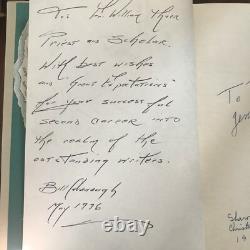 To: Fr. William Thorn
Priest and Scholar.
With best wishes
and "Great Expectations"
for your successful
second career into
the realm of the
outstanding writers.
Bill
May 1996
To
Shar
Christ
19